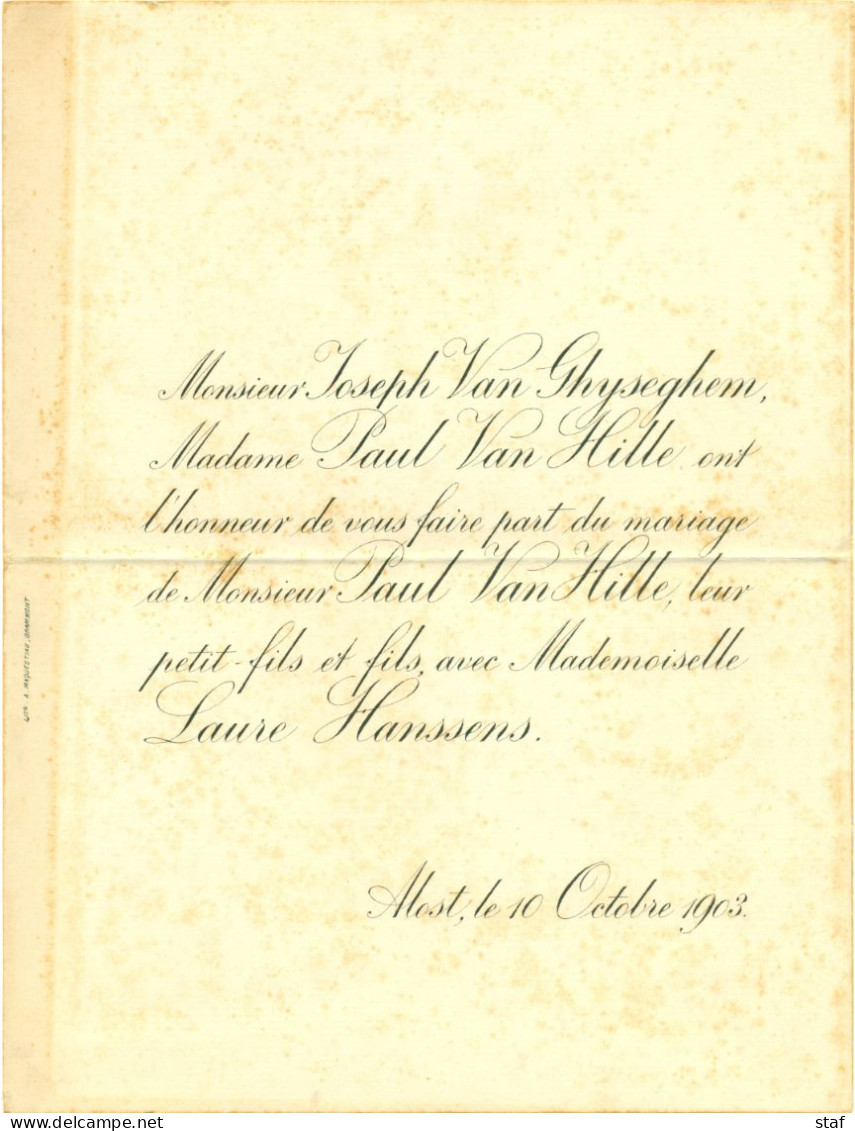 Monsieur Joseph Van Ghyseghem,
Madame Paul Van Hille ont
l'honneur de vous faire part du mariage
de Monsieur Paul Van Hille, leur
petit-fils et fils, avec Mademoiselle
Laure Hanssens.
Alost, le 10 Octobre 1903.
delcampe.net
staf